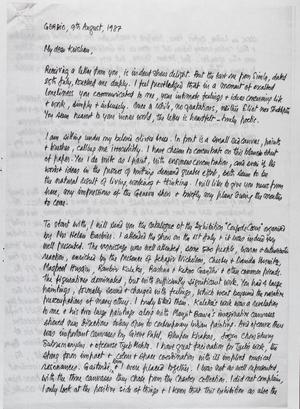 GORBIO, 9th August, 1987
My dear Krishen,
Receiving a letter from you, is indeed sheer delight. But the last one from Simla, dated
25th July, touched me deeply. I feel privileged that in a moment of exalted
loneliness you communicated to me, your intimate feelings + ideas concerning life
+ work, simply + intensely. Once a while, no quotations, neither Eliot nor
You seem nearest to your inner world, the letter is heartfelt - truly poetic.
I am sitting under my old olive trees. In front is a small canvas, paints
+ brushes, calling me irresistibly. I have chosen to concentrate on this blank sheet
of paper. Yes I do write as I paint, with enormous concentration, and even if the
words + ideas in the process of writing demand greater effort, both seem to be
the natural result of living, working + thinking. I will like to give you news from
here, my impressions of the Geneva show + briefly, my plans during the months
to come.
To start with, I will send you the catalogue of the Exhibition "Coups de Coeur" organised
by Mrs Halan Boubbes. I attended the show on the 1st July + it was indeed very
well presented. The vernissage was well attended, some 500 people, warm + enthusiastic
reaction, enriched by the presence of Jehangir Nicholson, Chester + Davida Herwitz,
Maqbool Husain, Bambi Kulukis, Rashna + Kekoo Gandhy + other common friends.
The figuration dominated, but with sufficiently significant work. You had 2 large
paintings, personally sensed + charged with feelings, which went beyond the narrative
preoccupations of many others. I truly liked them. Kaleka's work was a revelation
to me + his two large paintings along with Manjit Bawa's imaginative canvases
showed new directions taking place in contemporary Indian painting. And of course there
was important canvases by Gieve Patel, Bhupen Khakhar, Jogen Chowdhury
Subramanyam + of course Tyeb Mehta. I have great fascination for Tyeb's work, the
strong form impact + colour + space combination with its implied musical
resonances. Gaitonde + I were placed together. I was not so well represented
with the three canvases they chose from the Chester collection. I did not complain,
I only look at the positive side of things + I know that this exhibition as also the